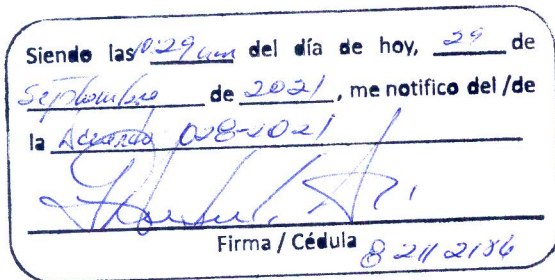 Siendo las 10:29 am del día de hoy, 29 de
Septiembre de 2021, me notifico del /de
la Acuerdo 028-2021
Firma / Cédula 8 211 2186